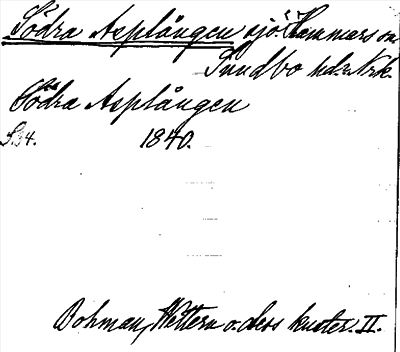 Södra Asplången sjö i Hammars o.
Sundbo hdr. Nrk.
Södra Asplången
S. 34. 1840.
Bohman, Wettern o. dess kuster. II.